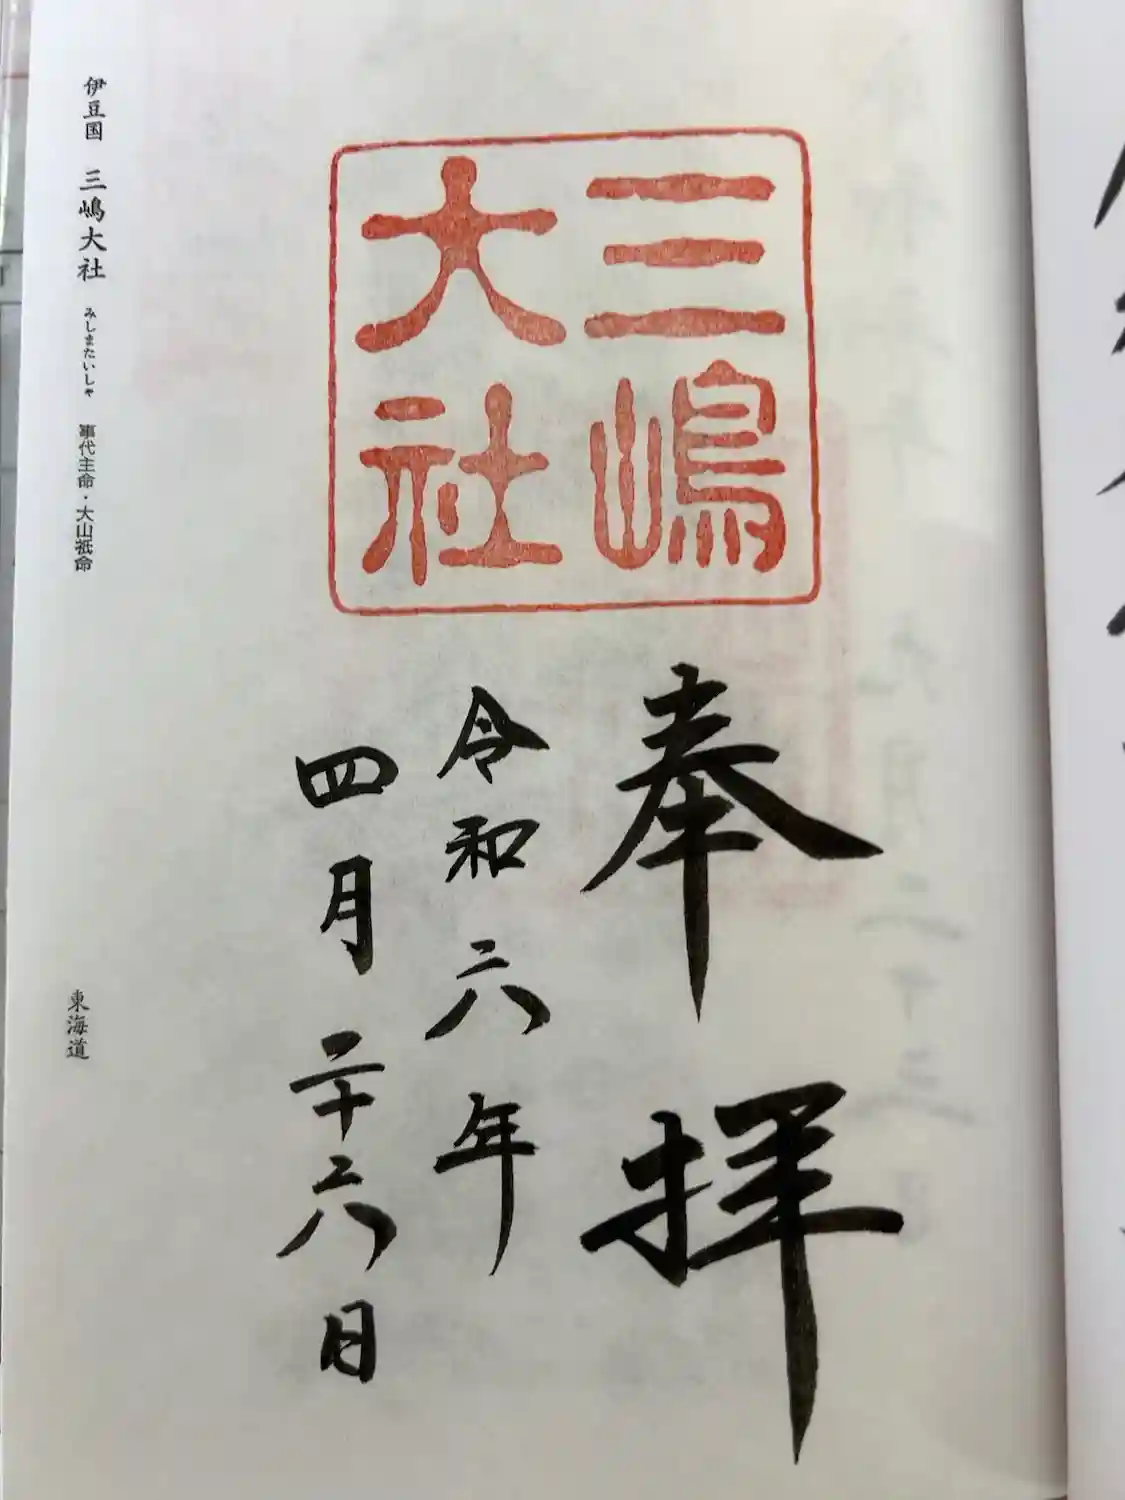 三嶋
大社
奉拝
令和六年
四月二十六日
伊豆国 三嶋大社 みしまたいしゃ 事代主命・大山祇命
東海道